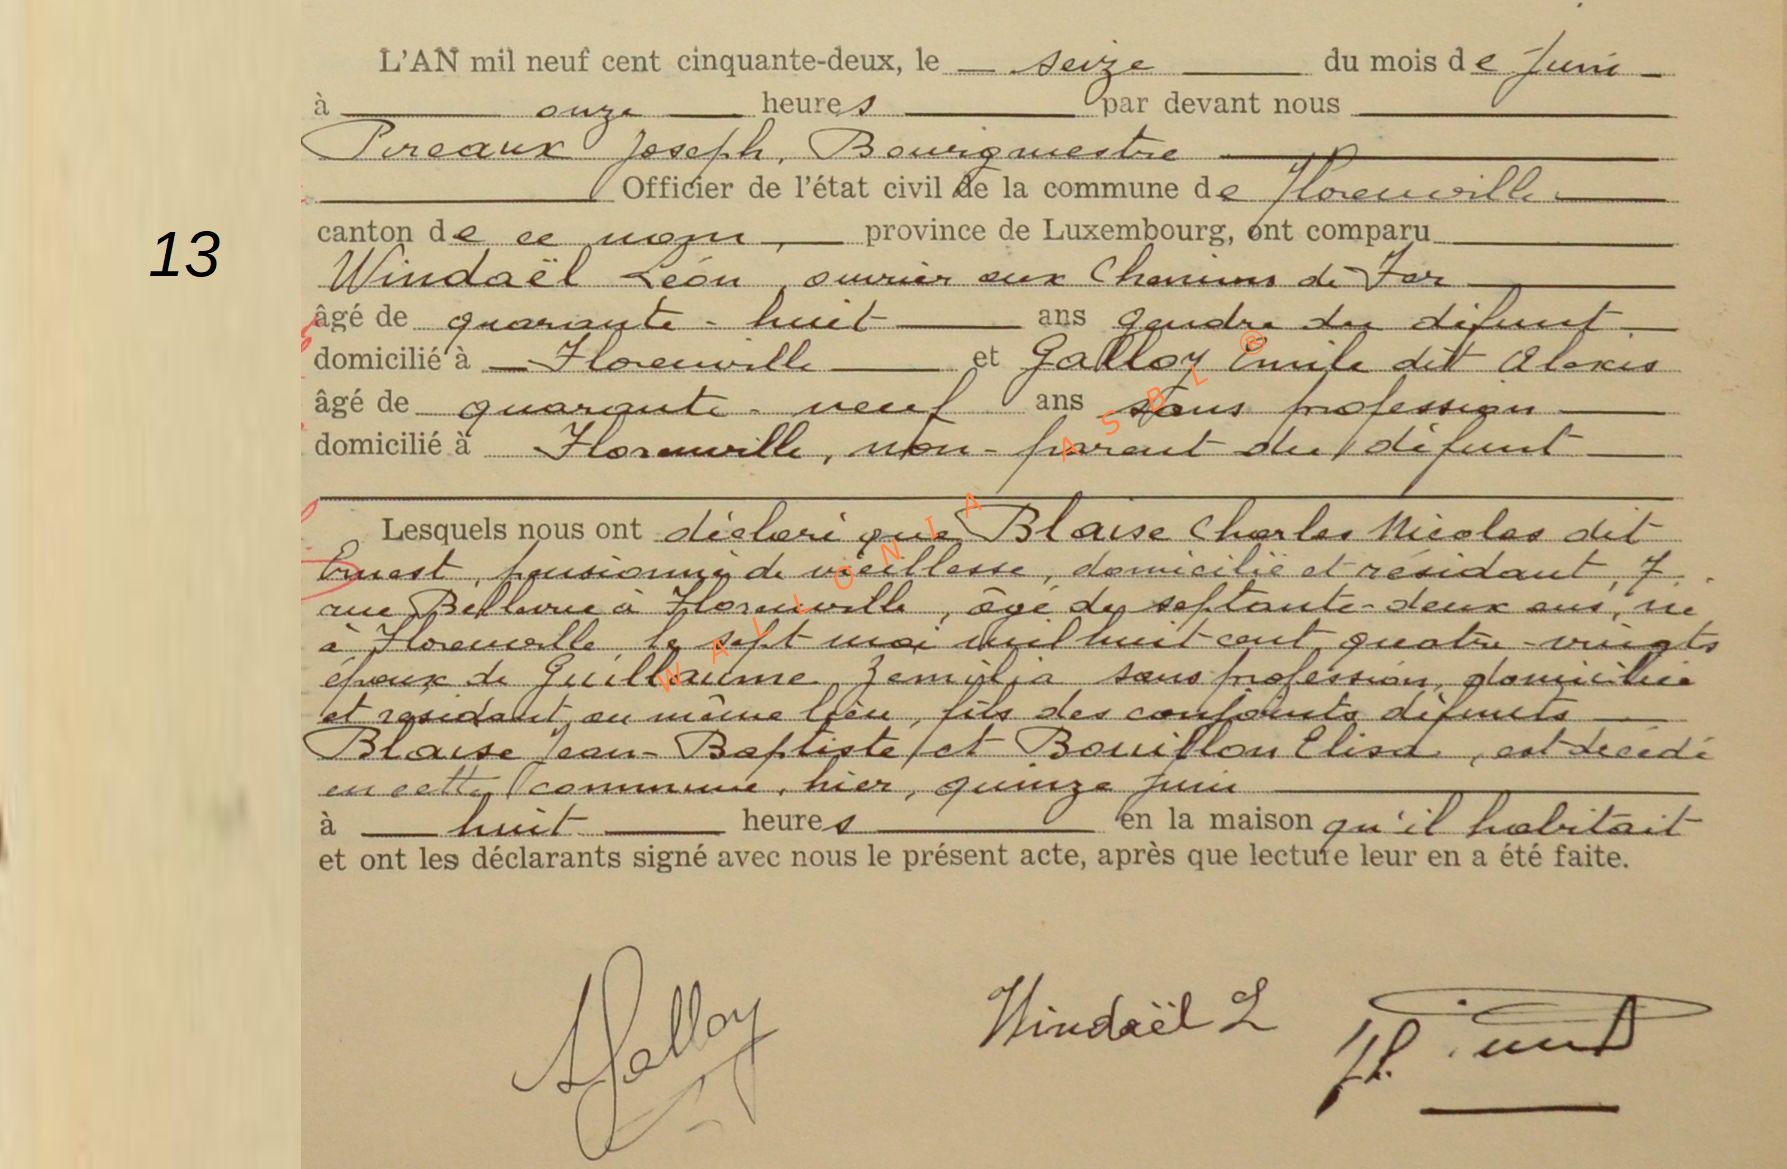 L'AN mil neuf cent cinquante-deux, le seize du mois de Juin
à onze heures par devant nous
Pireaux Joseph, Bourgmestre
Officier de l'état civil de la commune de Florenville
13
canton de ce nom, province de Luxembourg, ont comparu
Windaël Léon, ouvrier aux Chemins de Fer
âgé de quarante-huit ans gendre du défunt
domicilié à Florenville et Galloy Emile dit Alexis
âgé de quarante-neuf ans sans profession
domicilié à Florenville, non-parent du défunt
Lesquels nous ont déclaré que Blaise Charles Nicolas dit
Ernest, pensionné de vieillesse, domicilié et résidant, 7,
rue Bellevue à Florenville, âgé de septante-deux ans, né
à Florenville le sept mai mil huit cent quatre-vingts
époux de Guillaume Zemilia sans profession, domiciliée
et residant au même lieu, fils des conjoints défunts
Blaise Jean-Baptiste et Bouillon Elisa, est décédé
en cette commune, hier, quinze juin
à huit heures en la maison qu'il habitait
et ont les déclarants signé avec nous le présent acte, après que lecture leur en a été faite.
WALLONIA ASBL ®
A Galloy Windaël L